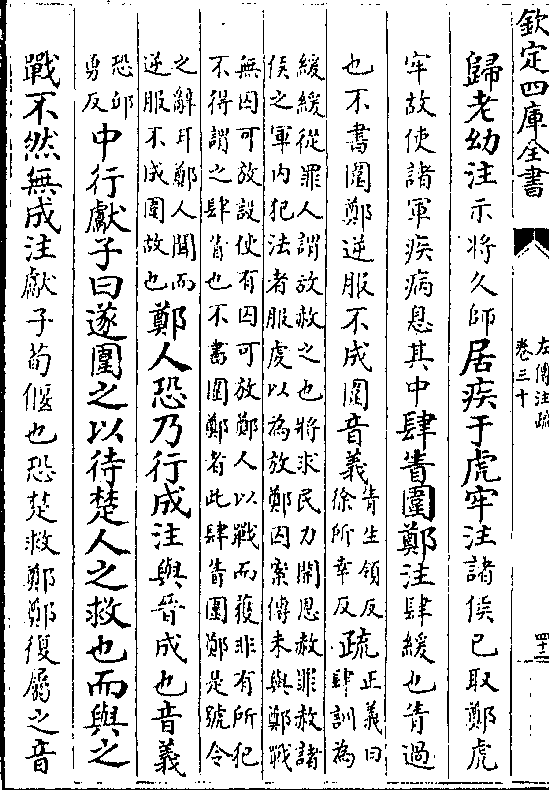 欽定四庫全書
左傳注疏
卷三十
四十一
歸老幼注示將久師居疾于虎牢注諸侯已取鄭虎
牢故使諸軍疾病息其中肆眚圍鄭注肆緩也眚過
也不書圍鄭逆服不成圍音義眚生領反徐所幸反疏正義曰肆訓為
緩緩從罪人謂故赦之也將求民力開恩赦罪赦諸
侯之軍内犯法者服虔以為放鄭囚案傳未與鄭戰
無囚可放設使有囚可放鄭人以戰而獲非有所犯
不得謂之肆眚也不書圍鄭者此肆眚圍鄭是號令
之辭耳鄭人聞而逆服不成圍故也鄭人恐乃行成注與晉成也音義
恐卭勇反中行獻子曰遂圍之以待楚人之救也而與之
戰不然無成注獻子荀偃也恐楚救鄭鄭復屬之音